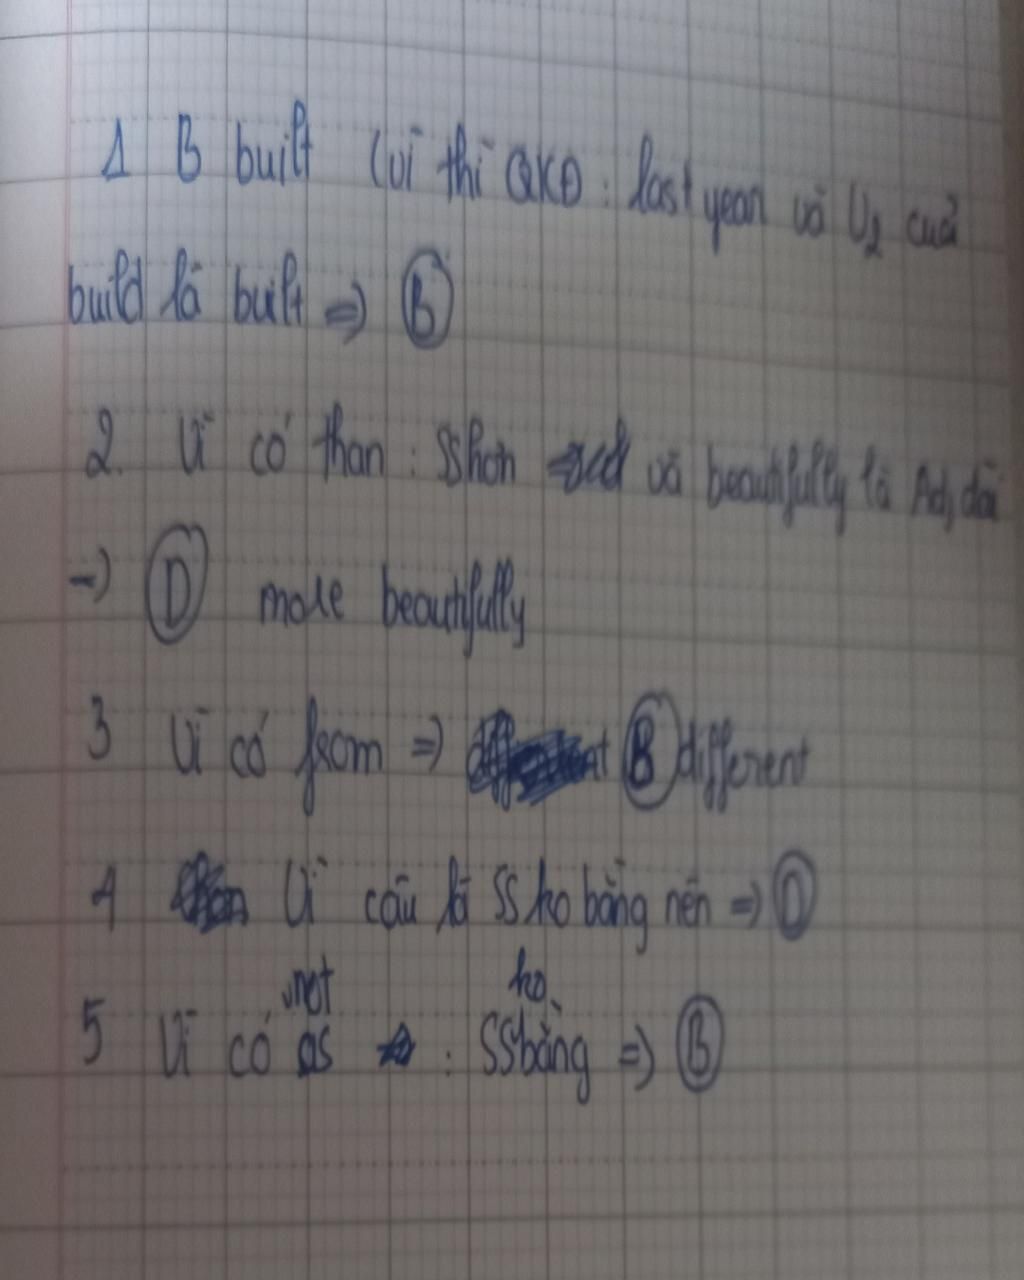 1 B built (vì thì QKĐ : last year và V2 của
build là built => B
2. Vì có than : SShơn và beautifully là Adj dài
-> D more beautifully
3 Vì có from => B different
4 Vì câu là SS ko bằng nên => D
not ko
5 Vì có as : SS bằng => B